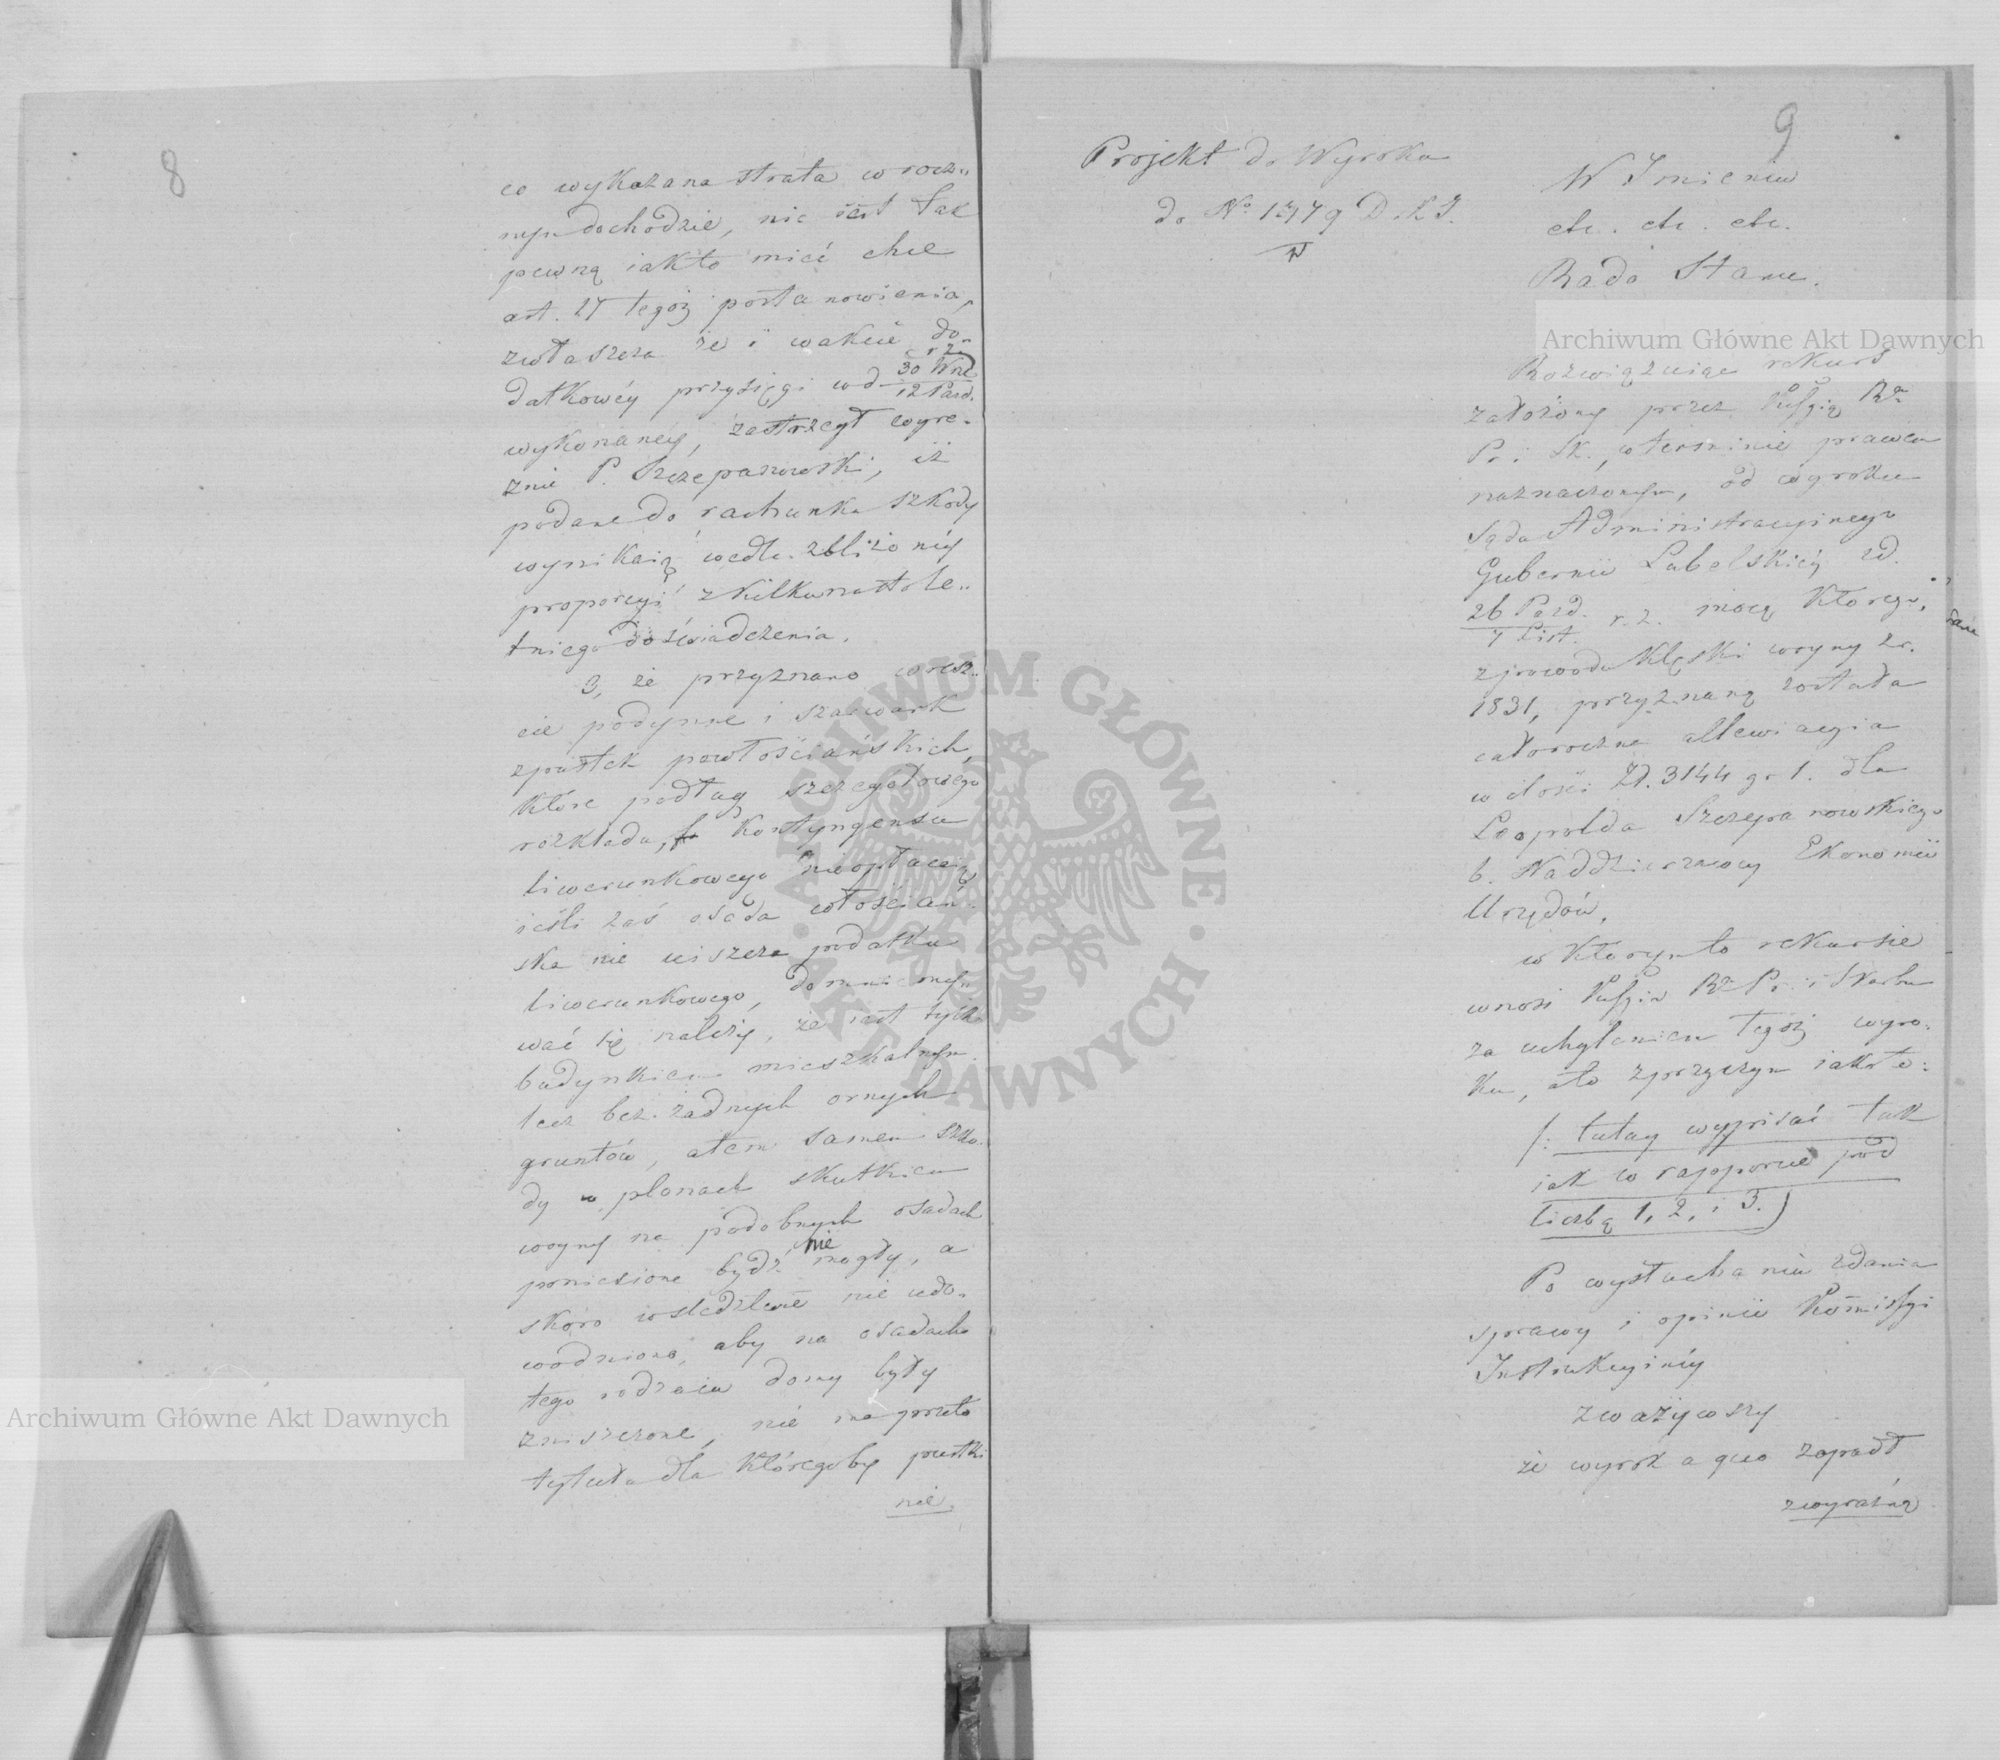 8
co wykazana strata w rocz„
nym dochodzie, nie iest tak
pewną iakto mieć chce
art. 27 tegóż postanowienia,
zwłaszcza że i w akcie do„
datkowéy przysięgi w d. 30 Wrz. / 12 Pazd. r. z.
wykonanéy, zastrzegł wyra„
źnie P. Szczepanowski, iż
podane do rachunku szkody
wynikaią wedle zbliżonéy
proporcyi z kilkunastole„
tniego doświadczenia.
3, że przyznano w resz„
cie podymne i szarwark
z pustek powłościańskich,
które podług szczegółowego
rozkładu, kontyngensu
liwerunkowego nieopłacaią
ieśli zaś osada włościań„
ska nie uiszcza podatku
liwerunkowego, domniemy„
wać się należy, że iest tylko
budynkiem mieszkalnym
lecz bez żadnych ornych
gruntów, a tem samem szko„
dy w plonach skutkiem
woyny na podobnych osadach
poniesione bydź nie mogły, a
skoro wśledztwie nie udo„
wodniono, aby na osadach
tego rodzaiu domy były
zniszczone, nie ma przeto
tytułu dla któregoby pustki
nie
9
Projekt do Wyroku
do No 1479 D. K. I.
W Imieniu
etc. etc. etc.
Rada Stanu.
Rozwiązuiąc rekurs
założony przez Kommissyą Rą
P. i Sk., w terminie prawem
naznaczonym, od wyroku
Sądu Administracyinego
Gubernii Lubelskiéy zd.
26 Pazd. / 7 List. r. z. mocą którego,
z powodu klęski woyny z r.
1831, przyznaną została
całoroczna allewiacyia
w ilości Zł. 3144 gr 1. dla
Leopolda Szczepanowskiego
b. Naddzierżawcy Ekonomii
Urzędów,
w którymto rekursie
wnosi Kommissya Rz. P. i Skarbu
za uchyleniem tegoż wyro„
ku, a to z przyczyn iakoto:
/: tutay wypisać tak
iak w rapporcie pod
liczbą 1, 2, i 3. )
Po wysłuchaniu zdania
sprawy i opinii Kommissyi
Instrukcyinéy
zważywszy
że wyrok a quo zapadł
zwyraźną
Archiwum Główne Akt Dawnych
Archiwum Główne Akt Dawnych
ARCHIWUM GŁÓWNE · AKT DAWNYCH ·